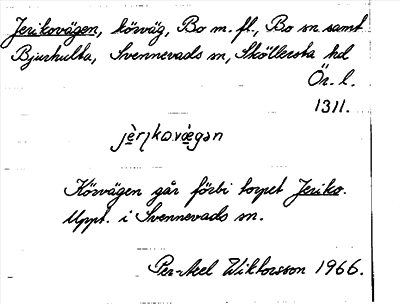 Jerikovägen, körväg, Bo m. fl., Bo sn samt
Bjurhulta, Svennevads sn, Sköllersta hd
Ör. l.
1311.
jè̱rịko.và̱gən
Körvägen går förbi torpet Jeriko.
Uppt. i Svennevads sn.
Per-Axel Wiktorsson 1966.